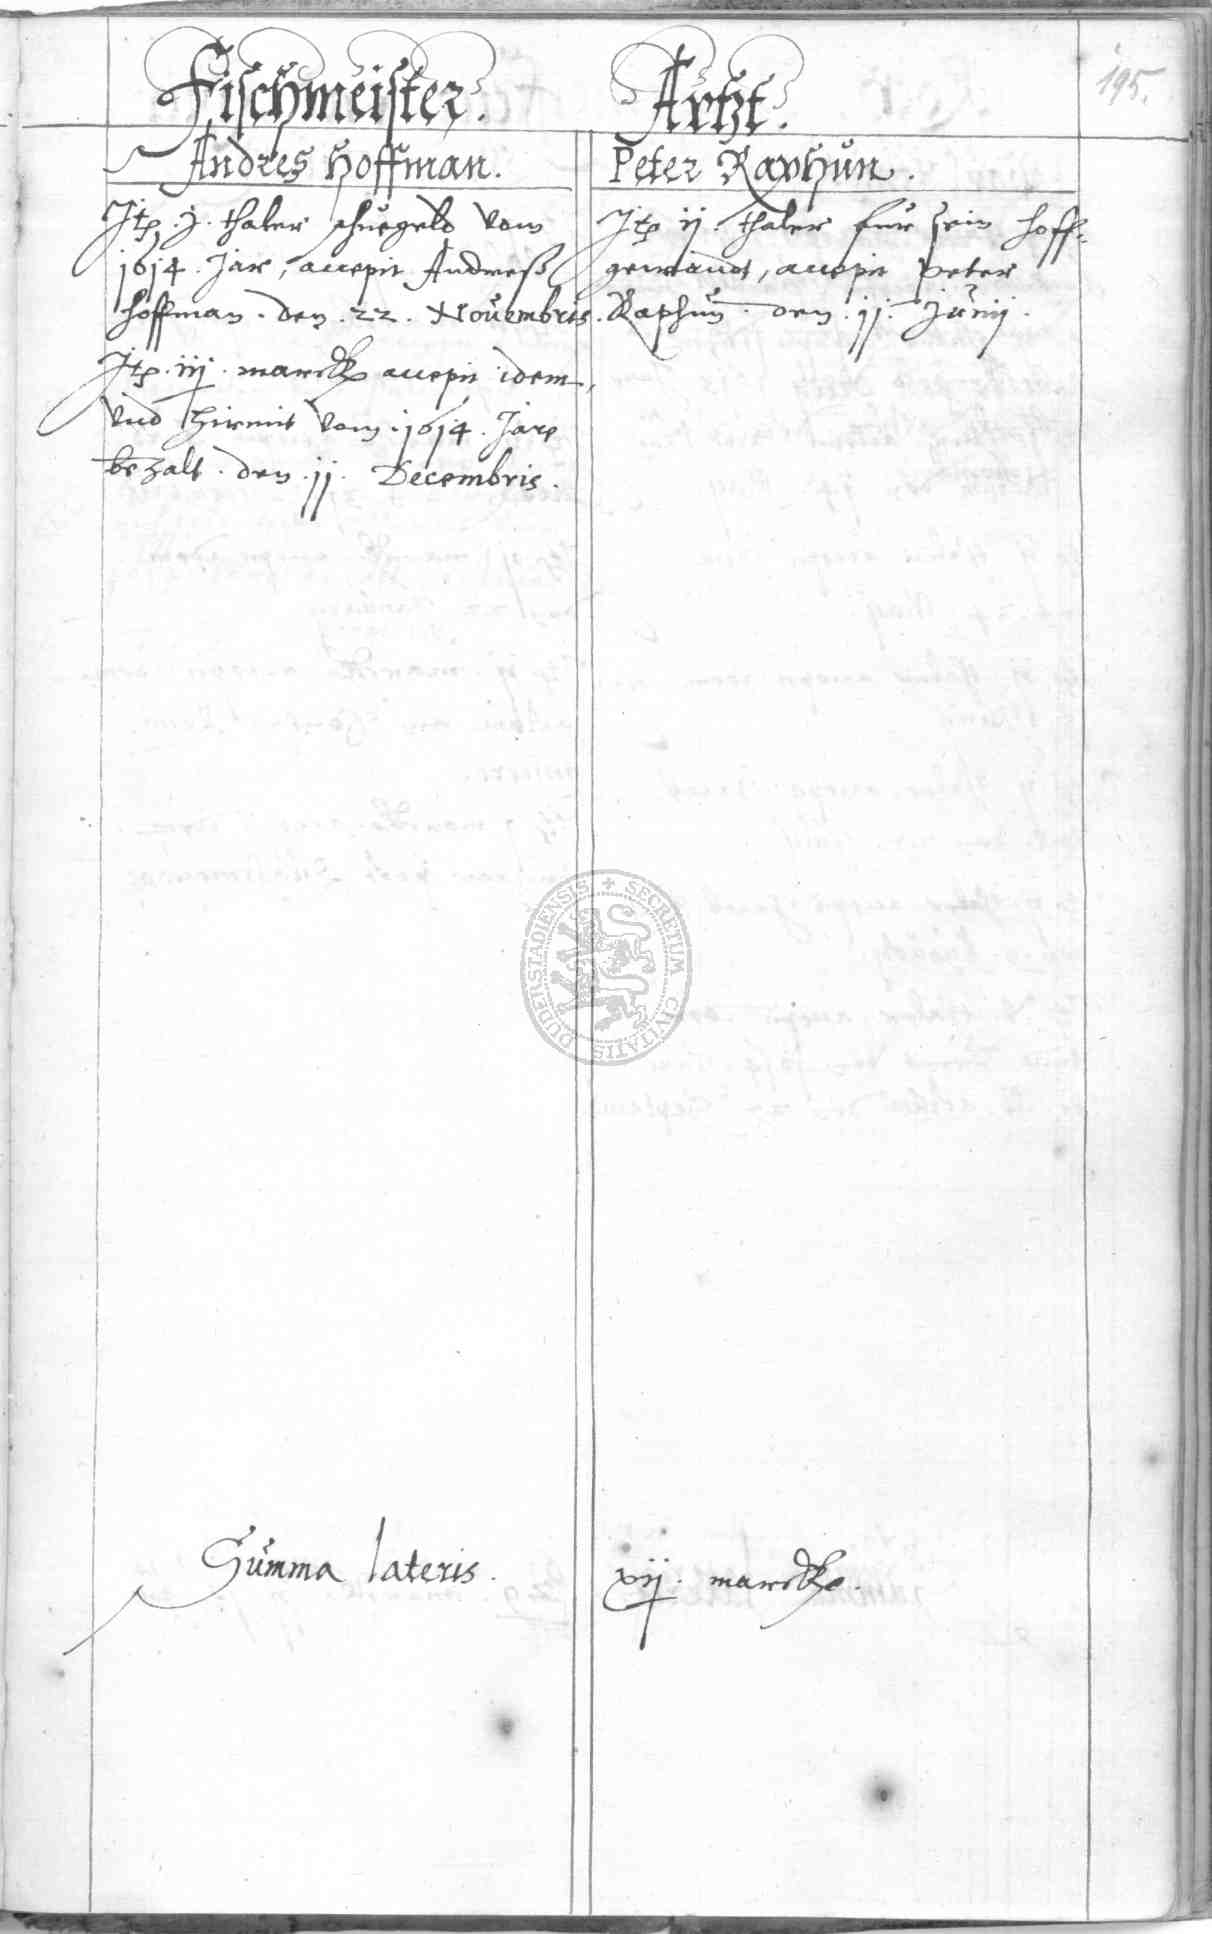 195.
Fischmeister.
Andres Hoffman.
Jtp. j. thaler schuegeld vom
1614. Jar, accepit Andreß
Hoffman. den. 22. Novembris.
Jtp. iij. marck accepit idem,
vnd hirmit vom. 1614. Jare
bezalt. den. jj. Decembris.
Artzt.
Peter Raphun.
Jtp ij. thaler fur sein hoff-
gewandt, accepit Peter
Raphun. den. jj. Junij.
Summa lateris.
vij. marck.
SECRETUM CIVITATIS DUDERSTADIENSIS